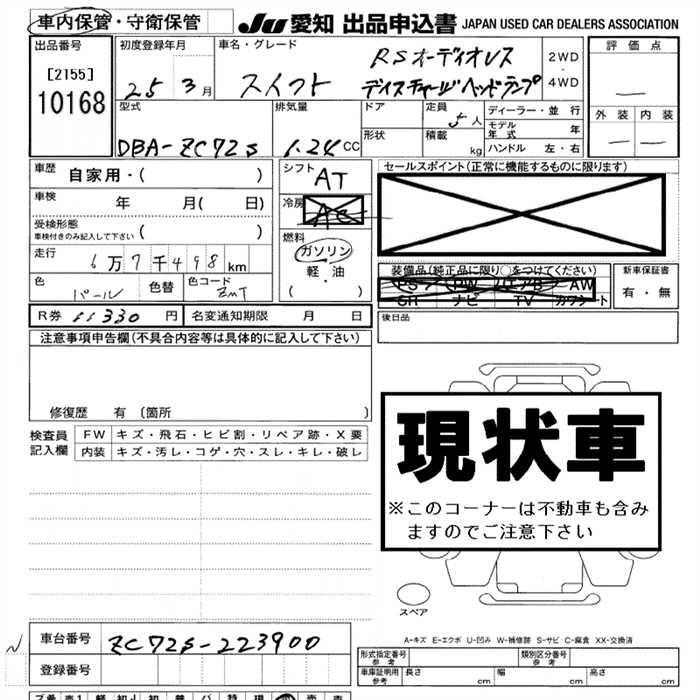 車内保管・守衛保管 JU 愛知 出品申込書 JAPAN USED CAR DEALERS ASSOCIATION
出品番号 初度登録年月 車名・グレード 評価点
[2155] RSオーディオレス 2WD
10168 25 3月 スイフト ディスチャージヘッドランプ ・4WD
型式 排気量 ドア 定員 ディーラー・並行 外装 内装
DBA-ZC72S 1.24CC 5人 モデル年式 年
形状 積載 kg ハンドル 左・右
車歴 自家用・( ) シフト AT セールスポイント(正常に機能するものに限ります)
車検 年 月( 日) 冷房 AC
受検形態
車検付きのみ記入して下さい ( ) 燃料
走行 6万7千498km ガソリン 装備品(純正品に限り○をつけてください) 新車保証書
色 パール 色替 色コード ZMT 軽・油 PS-7 PW エアB AW 有・無
( ・ ) SH ナビ TV カワシート
R券 11330円 名変通知期限 月 日 後日品
注意事項申告欄(不具合内容等は具体的に記入して下さい)
修復歴 有 (箇所 )
現状車
※このコーナーは不動車も含み
ますのでご注意下さい
検査員 FW キズ・飛石・ヒビ割・リペア跡・X要
記入欄 内装 キズ・汚レ・コゲ・穴・スレ・キレ・破レ
スペア
A-キズ E-エクボ U-凹み W-補修跡 S-サビ C-腐食 XX-交換済
車台番号 ZC72S-223900
登録番号
形式指定番号 参考 類別区分番号 参考
車庫証明用 参考 長さ cm 幅 cm 高さ cm